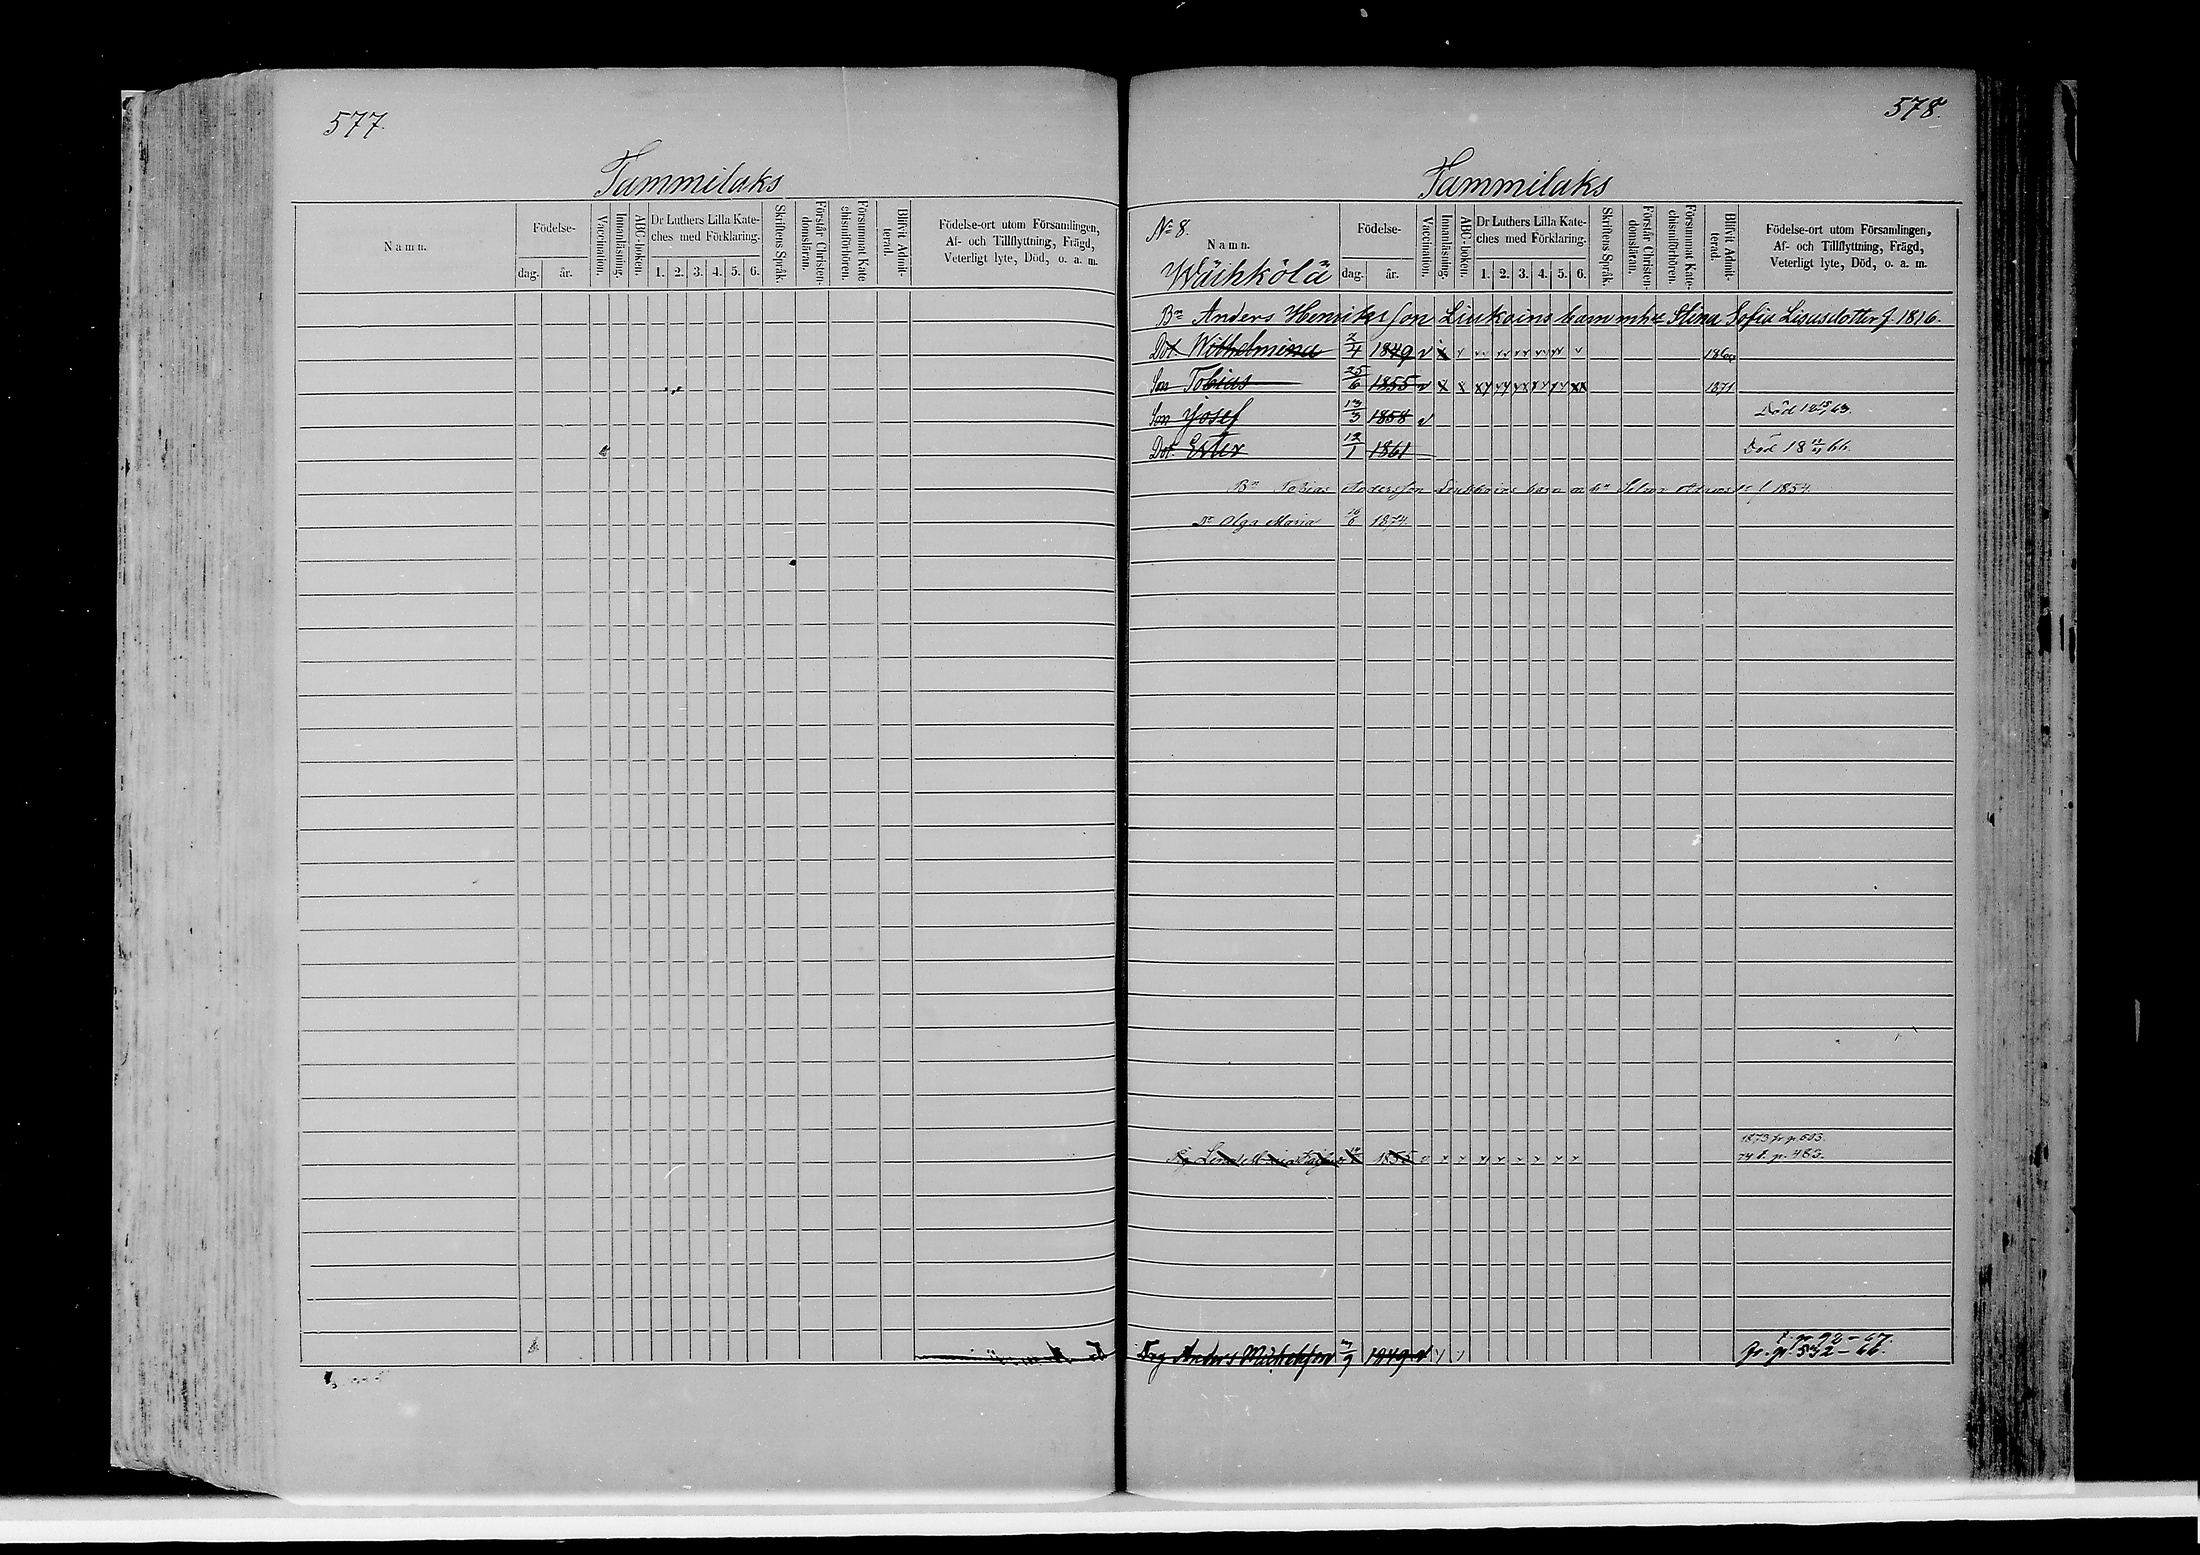 577.
Tammilaks
Namn.
Födelse-
dag.
år.
Vaccination.
Innanläsning.
ABC-boken.
Dr Luthers Lilla Kate-
ches med Förklaring.
1. 2. 3. 4. 5. 6.
Skriftens Språk.
Förstår Christen-
domsläran.
Försummat Kate
chismiförhören.
Blifvit Admit-
terad.
Födelse-ort utom Församlingen,
Af- och Tillflyttning, Frägd,
Veterligt lyte, Död, o. a. m.
578.
Tammilaks
No 8.
Namn.
Wäihkölä
Födelse-
dag.
år.
Vaccination.
Innanläsning.
ABC-boken.
Dr Luthers Lilla Kate-
ches med Förklaring.
1. 2. 3. 4. 5. 6.
Skriftens Språk.
Förstår Christen-
domsläran.
Försummat Kate-
chismiförhören.
Blifvit Admit-
terad.
Födelse-ort utom Församlingen,
Af- och Tillflyttning, Frägd,
Veterligt lyte, Död, o. a. m.
Bn Anders Henriksson Liukoins barn mhu Stina Sofia Lisasdotter f. 1816.
Dot. Wilhelmina 2/4 1849 v
Son Tobias 25/6 1855 v 1871
Son Josef 13/3 1858 v Död 63.
Dot. Ester 12/1 1861 Död 18 66.
Bn Tobias Andersson Liukkoins barn m hu f. 1854.
Dr Olga Maria 6 1874.
1873 fr. p. 503.
1855 v 74 t. p. 483.
t. p. 92-67.
Drg Anders Michelsson 9 1849 v fr. p. 532-66.